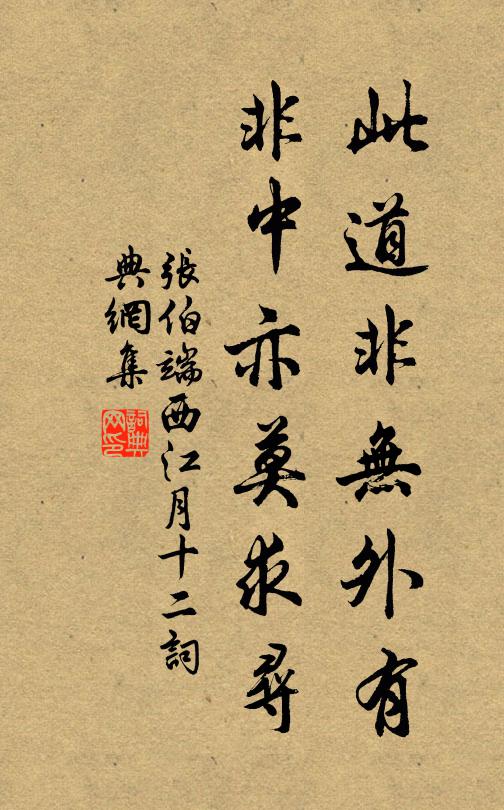 此道非無外有
非中亦莫求尋
張伯端西江月十二詞
典網集
詞典網印